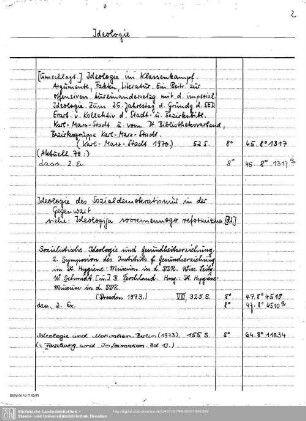 2
Ideologie
[Umschlagt.] Ideologie im Klassenkampf.
Argumente, Fakten, Literatur. Ein Beitr. zur
offensiven Auseinandersetzg mit d. imperial.
Ideologie. Zum 25. Jahrestag d. Gründg d. SED
Erarb. v. Kollektiv d. Stadt- u. Bezirksbibl.
Karl-Marx-Stadt u. vom Dt. Bibliotheksverband,
Bezirksgruppe Karl-Marx-Stadt.
(Karl-Marx-Stadt 1970.) 52 S. 8° 45. 8° 1317
(Aktuell 70.)
dass. 2. Ex. 8° 45. 8° 1317
Ideologie des Sozialdemokratismus in der
Gegenwart
siehe: Ideologija sovremennogo reformizma
Sozialistische Ideologie und Gesundheitserziehung.
2. Symposion des Instituts f. Gesundheitserziehung
im Dt. Hygiene-Museum in d. DDR.
Hrsg. Dt. Hygiene-
Museum in d. DDR.
(Dresden 1973.) VII, 325 S. 8° 47. 8° 4510
dass. 2. Ex. 8° 47. 8° 4510
Ideologie und Motivation. Berlin (1973). 155 S. 8° 64. 8° 11834
(= Forschung und Information. Bd 13.)